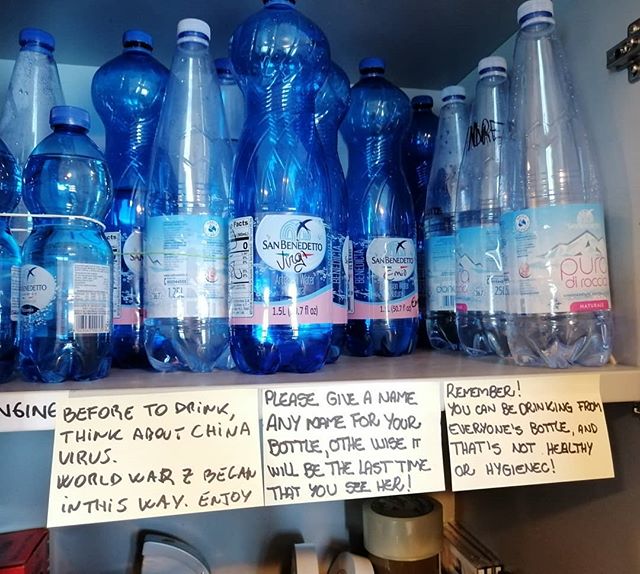 Facts
0
SAN BENEDETTO
Virg
1.5L (50.7 fl oz)
SAN BENEDETTO
Emis
1.5L (50.7 fl oz)
ANDRE
1.25L
pura
di roccia
NATURALE
NGINE
BEFORE TO DRINK,
THINK ABOUT CHINA
VIRUS.
WORLD WAR Z BEGAN
IN THIS WAY. ENJOY
PLEASE GIVE A NAME
ANY NAME FOR YOUR
BOTTLE, OTHE WISE IT
WILL BE THE LAST TIME
THAT YOU SEE HER!
REMEMBER!
YOU CAN BE DRINKING FROM
EVERYONE'S BOTTLE, AND
THAT'S NOT HEALTHY
OR HYGIENEC!